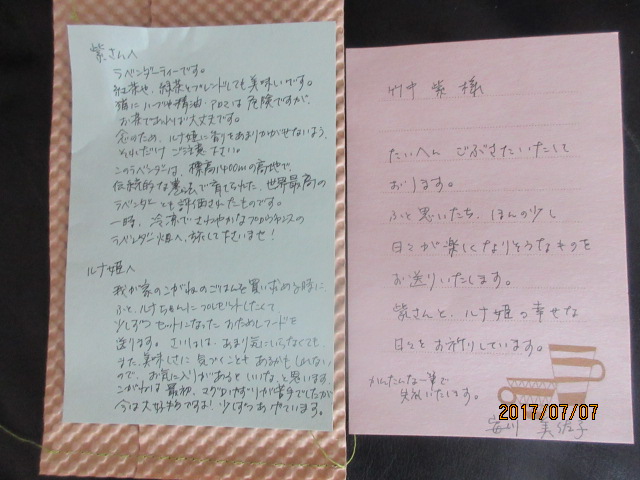 紫さんへ
ラベンダーティーです。
紅茶や、緑茶とブレンドしても美味しいです。
猫にハーブや精油・アロマは危険ですが、
お茶であれば大丈夫です。
念のため、ルナ姫に香りをあまりかがせないよう、
それだけご注意下さい。
このラベンダーは、標高1400mの高地で、
伝統的な農法で育てられた、世界最高の
ラベンダーとも評価されたものです。
一時、冷涼でさわやかなプロヴァンスの
ラベンダー畑へ、旅して下さいませ!
ルナ姫へ
我が家のこがねのごはんを買い求める時に、
ふと、ルナちゃんにプレゼントしたくて、
少しずつセットになったおためしフードを
送ります。さいしょは、あまり気に入らなくても、
また、美味しさに気づくこともあるかもしれない
ので、お気に入りがあるといいな、と思います。
こがねは最初、マグロやけずりが苦手でしたが
今は大好きですよ!少しずつあげています。
竹中 紫 様
たいへん ごぶさたいたして
おります。
ふと思いたち、ほんの少し
日々が楽しくなりそうなものを
お送りいたします。
紫さんと、ルナ姫の幸せな
日々をお祈りしています。
かんたんな一筆で
失礼いたします。
美佐子
2017/07/07